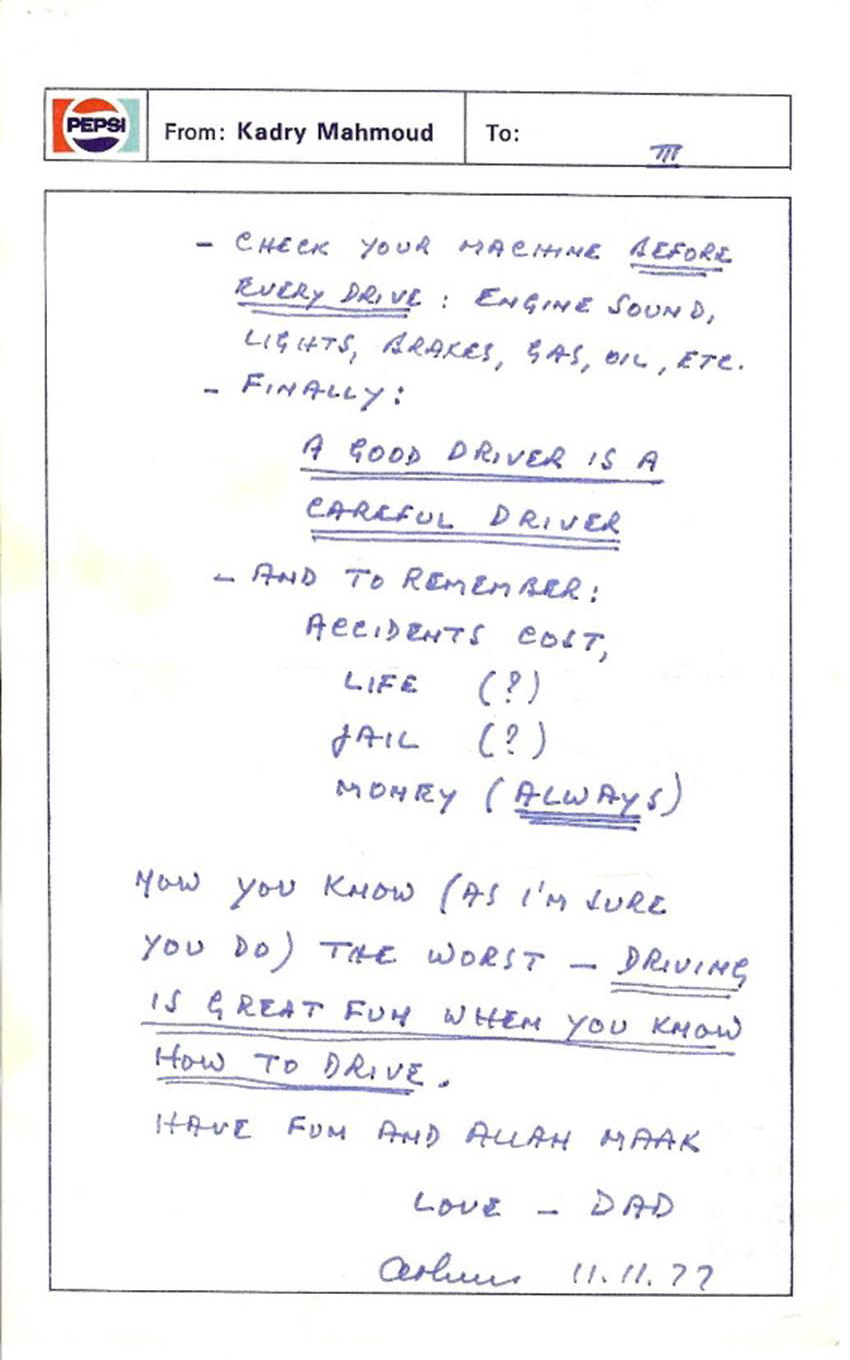 PEPSI
From: Kadry Mahmoud
To:
III
- CHECK YOUR MACHINE BEFORE
EVERY DRIVE : ENGINE SOUND,
LIGHTS, BRAKES, GAS, OIL, ETC.
- FINALLY:
A GOOD DRIVER IS A
CAREFUL DRIVER
- AND TO REMEMBER:
ACCIDENTS COST,
LIFE (?)
JAIL (?)
MONEY (ALWAYS)
NOW YOU KNOW (AS I'M SURE
YOU DO) THE WORST - DRIVING
IS GREAT FUN WHEN YOU KNOW
HOW TO DRIVE.
HAVE FUN AND ALLAH MAAK
LOVE - DAD
11.11.77